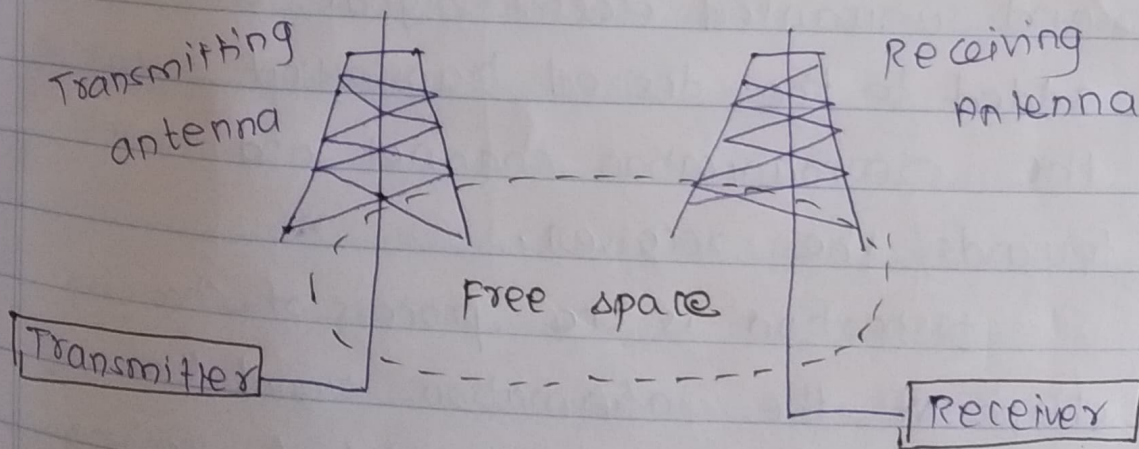 Transmitting
antenna
Receiving
Antenna
Free space
Transmitter
Receiver